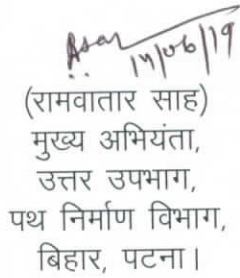 17/06/19
(रामवातार साह)
मुख्य अभियंता,
उत्तर उपभाग,
पथ निर्माण विभाग,
बिहार, पटना।